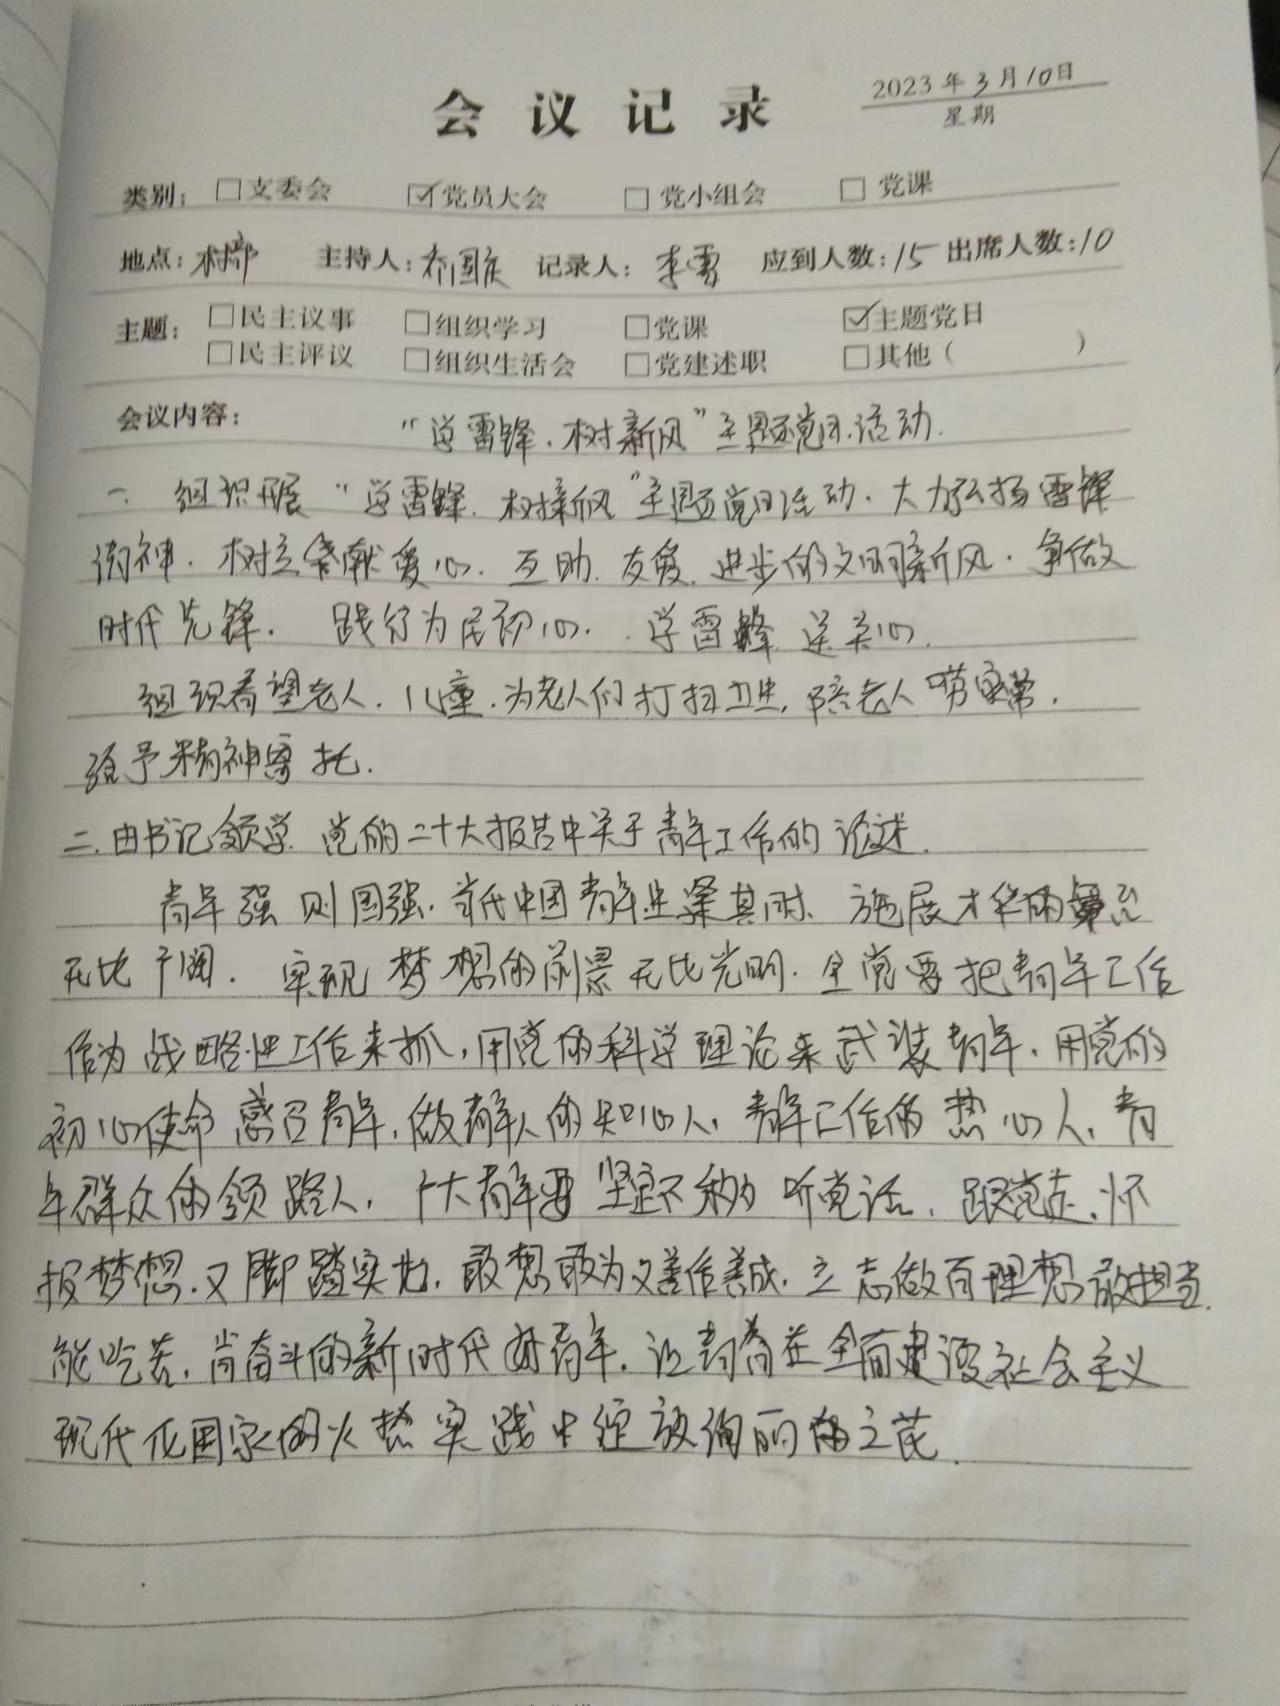 会议记录
2023年3月10日
星期
类别: □支委会 ☑党员大会 □党小组会 □党课
地点:村部 主持人:国庆 记录人:李雪 应到人数:15 出席人数:10
主题: □民主议事 □组织学习 □党课 ☑主题党日
□民主评议 □组织生活会 □党建述职 □其他( )
会议内容: “学雷锋.树新风”主题党日活动.
一. 组织开展“学雷锋.树新风”主题党日活动.大力弘扬雷锋
精神.树立奉献爱心.互助.友爱.进步的文明新风.争做
时代先锋. 践行为民初心..学雷锋 送关心.
组织看望老人.儿童.为老人们打扫卫生,陪老人唠家常,
给予精神寄托.
二.由书记领学 党的二十大报告中关于青年工作的论述.
青年强则国强.当代中国青年生逢其时、施展才华的舞台
无比广阔.实现梦想的前景无比光明.全党要把青年工作
作为战略性工作来抓,用党的科学理论来武装青年.用党的
初心使命感召青年,做青年人的知心人,青年工作的热心人,青
年群众的领路人,广大青年要坚定不移听党话、跟党走.怀
报梦想.又脚踏实地,敢想敢为又善作善成.立志做有理想敢担当.
能吃苦,肯奋斗的新时代好青年.让青春在全面建设社会主义
现代化国家的火热实践中绽放绚丽的之花.